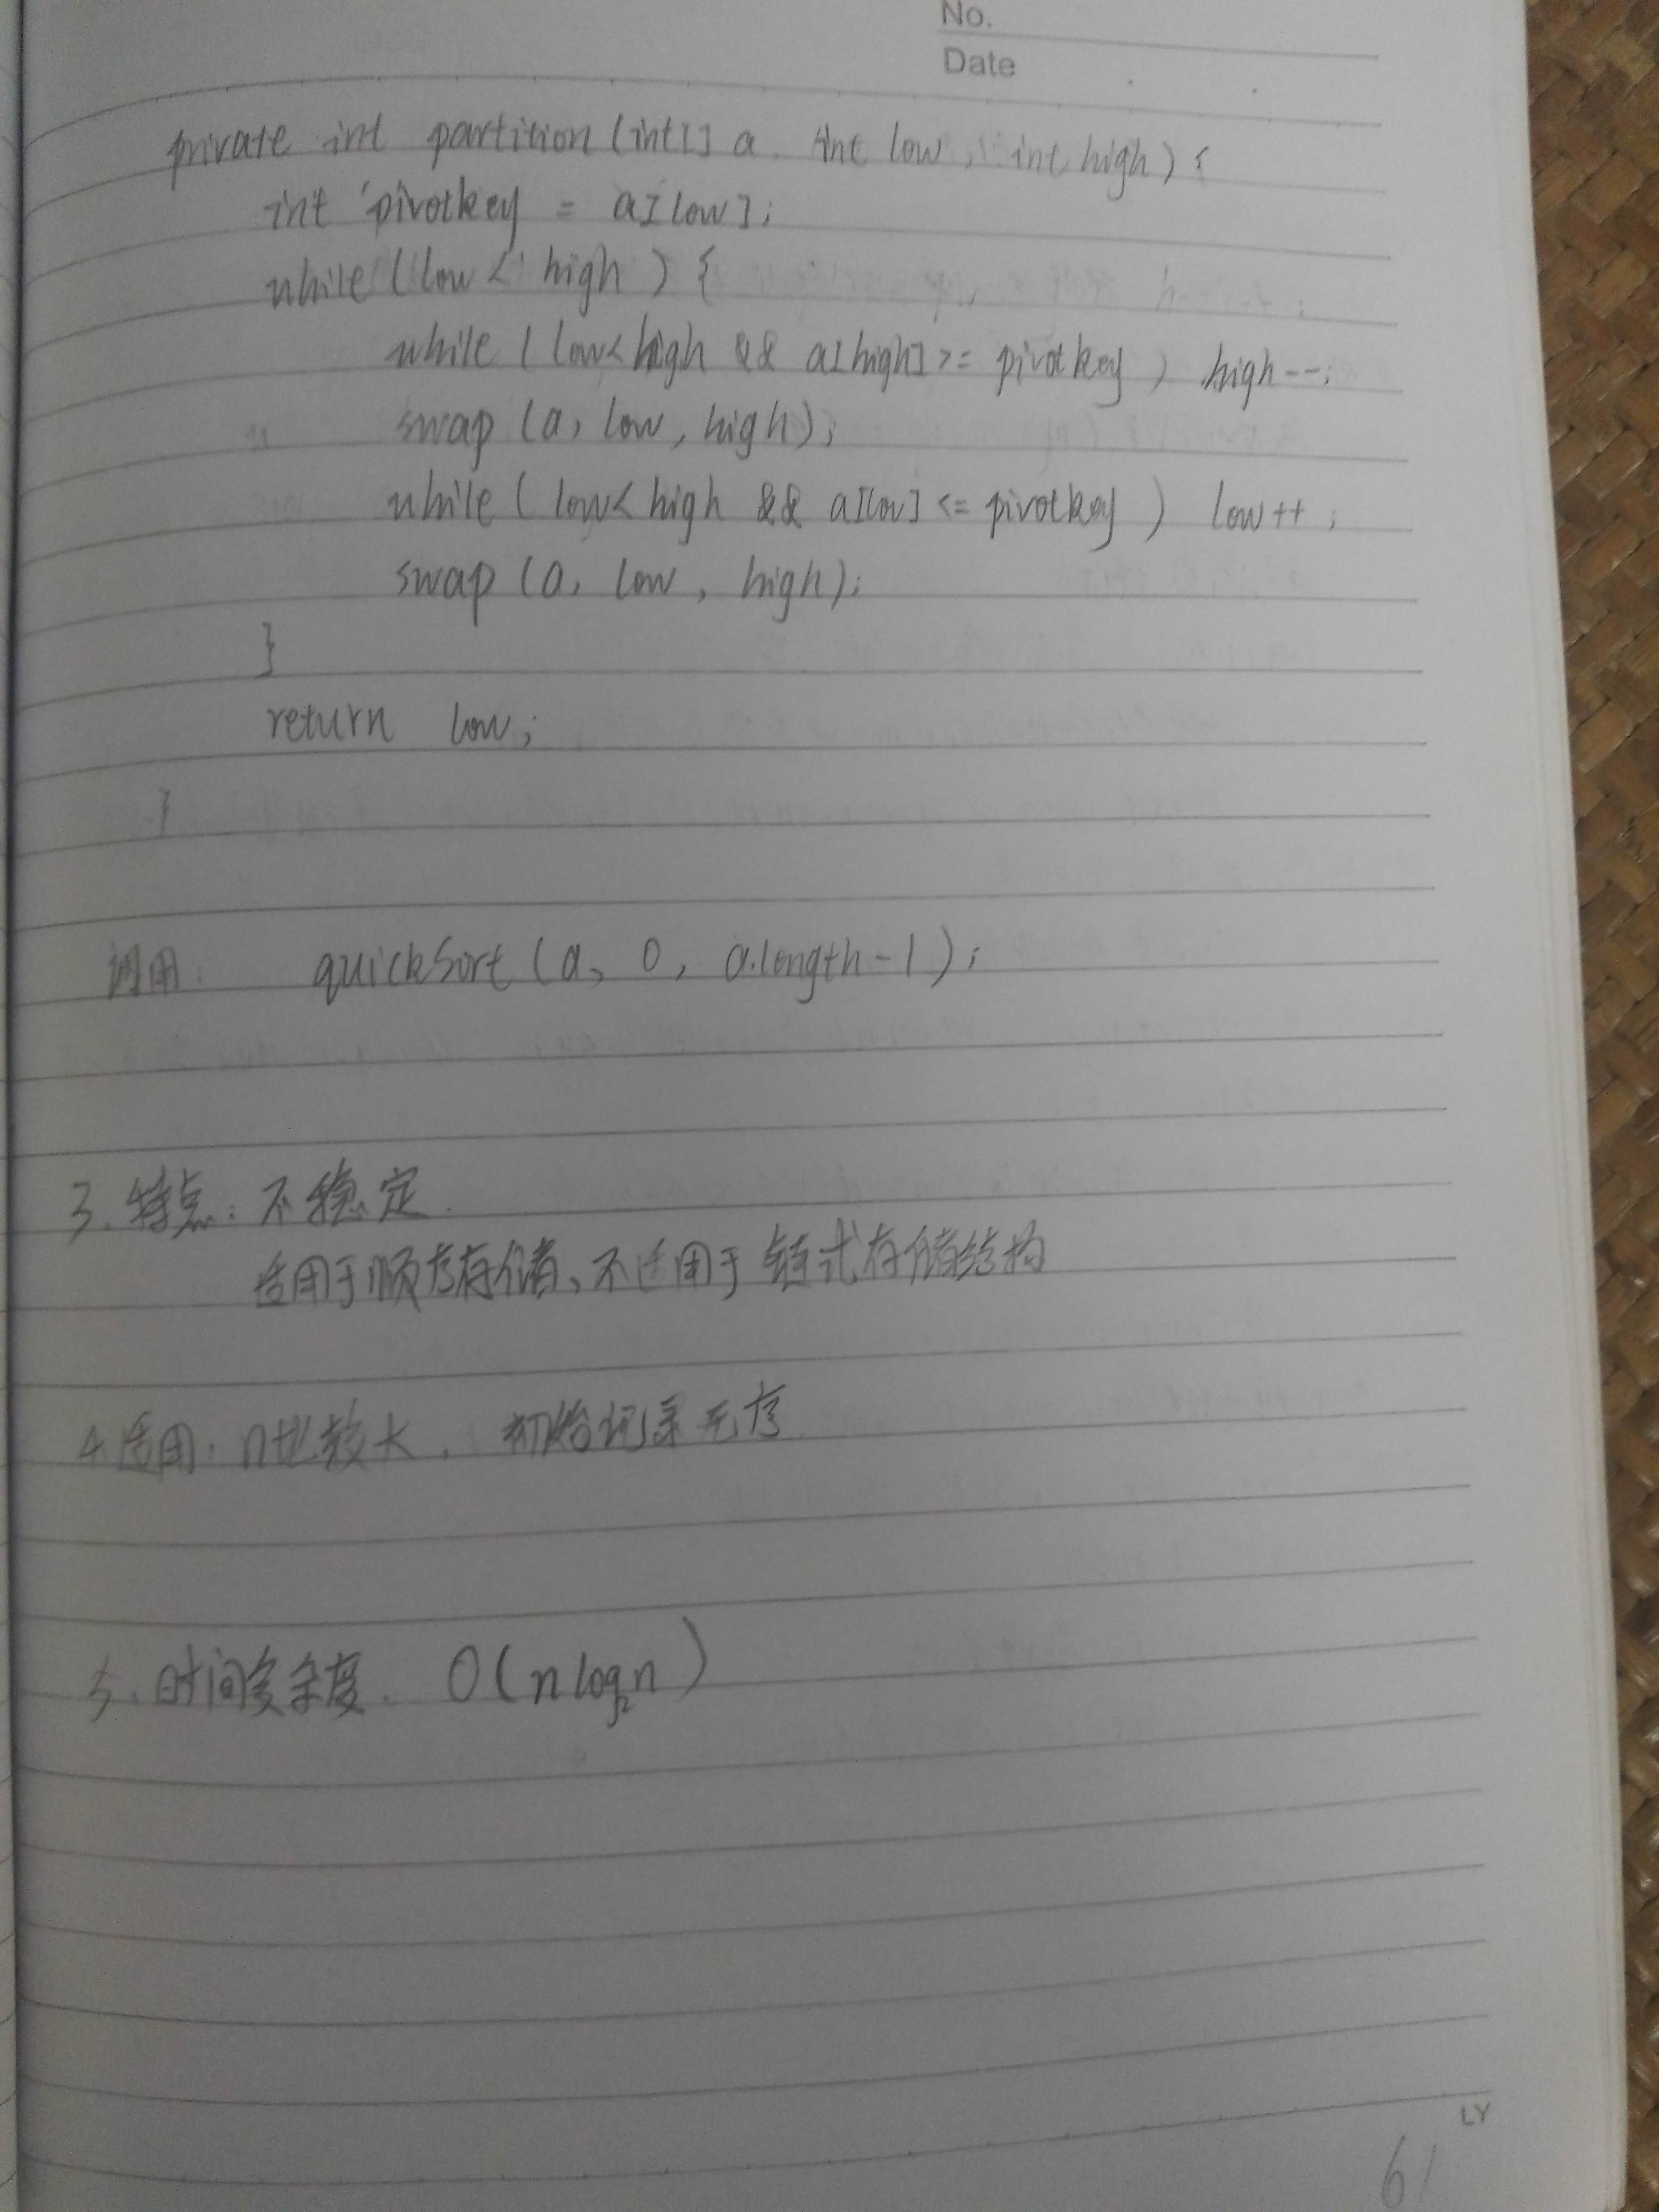 No.
Date
private int partition (int[] a, int low, int high) {
int pivotkey = a[low];
while (low < high) {
while (low < high && a[high] >= pivotkey) high--;
swap (a, low, high);
while (low < high && a[low] <= pivotkey) low++;
swap (a, low, high);
}
return low;
}
调用: quickSort (a, 0, a.length-1);
3. 特点: 不稳定.
适用于顺序存储、不适用于链式存储结构
4. 适用: n比较大. 初始记录无序
5. 时间复杂度. O(nlog₂n)
LY
61